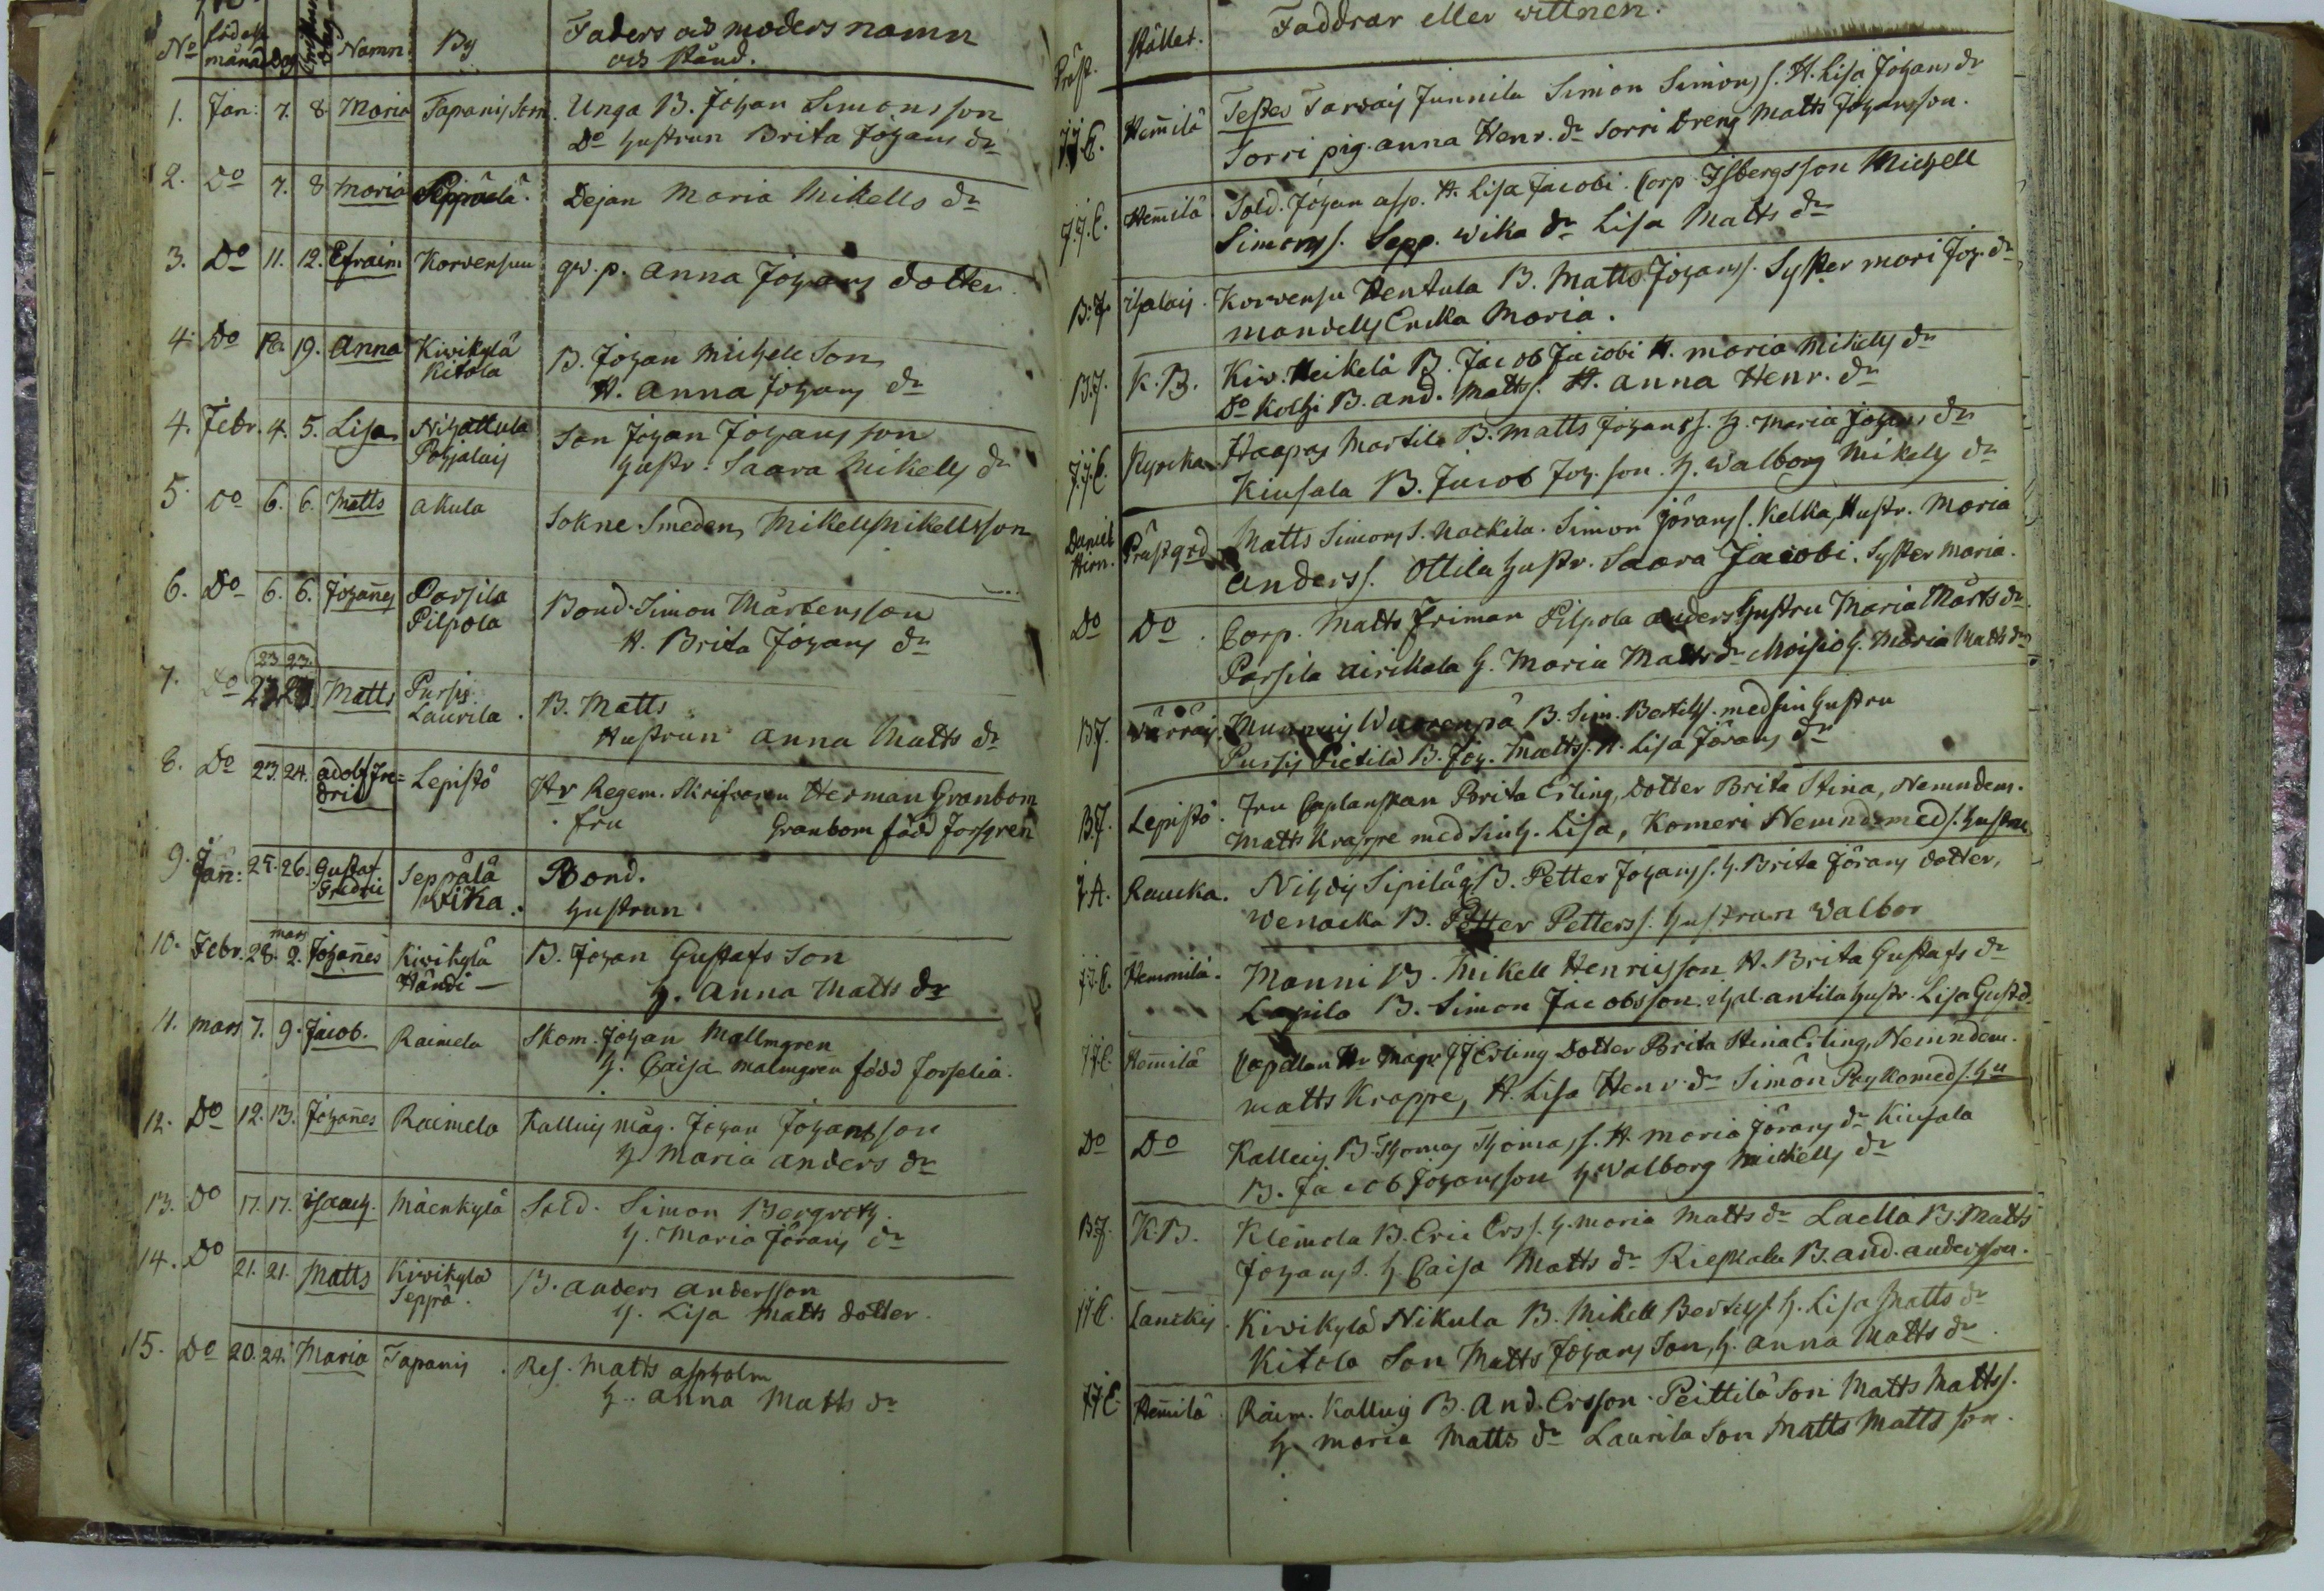 No födelse månad Dag Namn By Faders och moders namn
och stånd.
1. Jan: 7. 8. Maria Tapanis Unga B. Johan Simonsson
Do hustrun Brita Johans dr
2. Do 7. 8 Maria Seppälä. Dejan Maria Mikells dr
3. Do 11. 12. Efraim Korvensuu qv. p. Anna Johans dotter
4. Do 19. Anna Kivikylä
Kitola
B. Johan Michell Son
H. Anna Johans dr
4. Febr. 4. 5. Lisa Nihattula
Pohjalais
Son Johan Johansson
hustr: Saara Mikells dr
5. Do 6. 6. Matts Akula Sokne Smeden Mikell Mikellsson
6. Do 6. 6. Johannes Parsila
Pilpola
Bond. Simon Mårtensson
H. Brita Johans dr
23 23
7. Do Matts Pursis
Laurila.
B. Matts
Hustrun Anna Matts dr
8. Do 23. 24. Adolf Fre=
dric
Lepistö
Hr Regem. Skrifvaren Herman Granbom
fru Granbom född Forsgren
9. Jan: 25. 26. Gustaf
Fredric
Seppälä
Wika.
Bond.
hustrun
10. Febr. 28. mars 2. Johannes Kivikylä
Händi —
B. Johan Gustafs Son
h. Anna Matts dr
11. Mars 7. 9. Jacob. Raimela Skom. Johan Mallmgren
h. Caisa Malmgren född Forselia.
12. Do 12. 13. Johannes Raimela Kalluis måg. Johan Johansson
h. Maria Anders dr
13. Do 17. 17. Isaach. Mäenkylä Sold. Simon Bergroth.
h. Maria Jörans dr
14. Do 21. 21. Matts Kivikylä
Seppä.
B. Anders Andersson
h. Lisa Matts dotter.
15. Do 20. 24. Maria Tapanis. Res. Matts Aspholm
h. Anna Matts dr
Präst. stället. Faddrar eller wittnen.
J.J.E. Hemmilä Testes Tarvais Junnila Simon Simons s. H. Lisa Johans dr
Sorri pig. Anna Henr. dr Sorri Dreng Matts Johansson.
J.J.E. Hemmilä Sold. Johan Asp. H. Lisa Jacobi. Corp. Isbergsson Michell
Simons s. Sepp. Wika dr Lisa Matts dr
B.J. Ihalais. Korvensu Hentula B. Matts Johans s. Syster Mari Joh. dr
Mandells Enka Maria.
B.J. K.B. Kiv. Heikelä B. Jacob Jacobi H. Maria Mikells dr
Do Kolhi B. And. Matts s. H. Anna Henr. dr
J.J.E. Haapas Martila B. Matts Johans s. h. Maria Johans dr
Kiusala B. Jacob Joh. son. h. Walborg Mikells dr
Daniel
Hirn. Prästgrd Matts Simons s. Nackila. Simon Jörans s. Kelka, Hustr. Maria
Anders s. Ottila hustr. Saara Jacobi. Syster Maria.
Do Do. Corp. Matts Friman Pilpola Anders hustru Maria Mårts dr.
Parsila Airikala h. Maria Matts dr Moisio h. Maria Matts dr
B.J. B. Sim. Bertils s. med sin hustru
Pursis Pietilä B. Joh. Matts s. H. Lisa Jörans dr
B.J. Lepistö. Fru Caplanskan Brita Erling, Dotter Brita Stina, Nemndem.
Matts Krappe med sin h. Lisa, Komeri Nemnd. med s. hustru
J.A. Raucka. Nihdis Sipilä B. Petter Johans s. h. Brita Jörans dotter,
Wenacka B. Petter Petters s. hustrun Walbor
J.J.E. Hemmilä. Manni B. Mikell Henricsson H. Brita Gustafs dr
Lapila B. Simon Jacobsson. Ihal. Antila hustr. Lisa Gust. d.
J.J.E. Hemmilä Capellan Hr Magr J J Erling Dotter Brita Stina Erling, Nemndem.
Matts Krappe, H. Lisa Henr. dr Simon Pryko med s. hu
Do Do Kalluis B. Thomas Thomas s. H. Maria Jörans dr Kiusala
B. Jacob Johansson h. Walborg Mickells dr
B.J. K.B. Klemola B. Eric Ers s. h. Maria Matts dr Laella B. Matts
Johans s. h. Caisa Matts dr Rieskala B. And. Andersson.
J.J.E. Lanckis. Kivikylä Nikula B. Mikell Bertils s. h. Lisa Matts dr
Kitola Son Matts Johans Son, h. Anna Matts dr.
J.J.E. Hemmilä Raim. Kalluis B. And. Ersson. Peittilä Son Matts Matts s.
h. Maria Matts dr Laurila Son Matts Matts son.